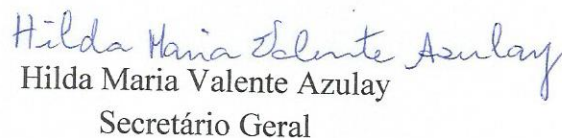 Hilda Maria Valente Azulay
Hilda Maria Valente Azulay
Secretário Geral